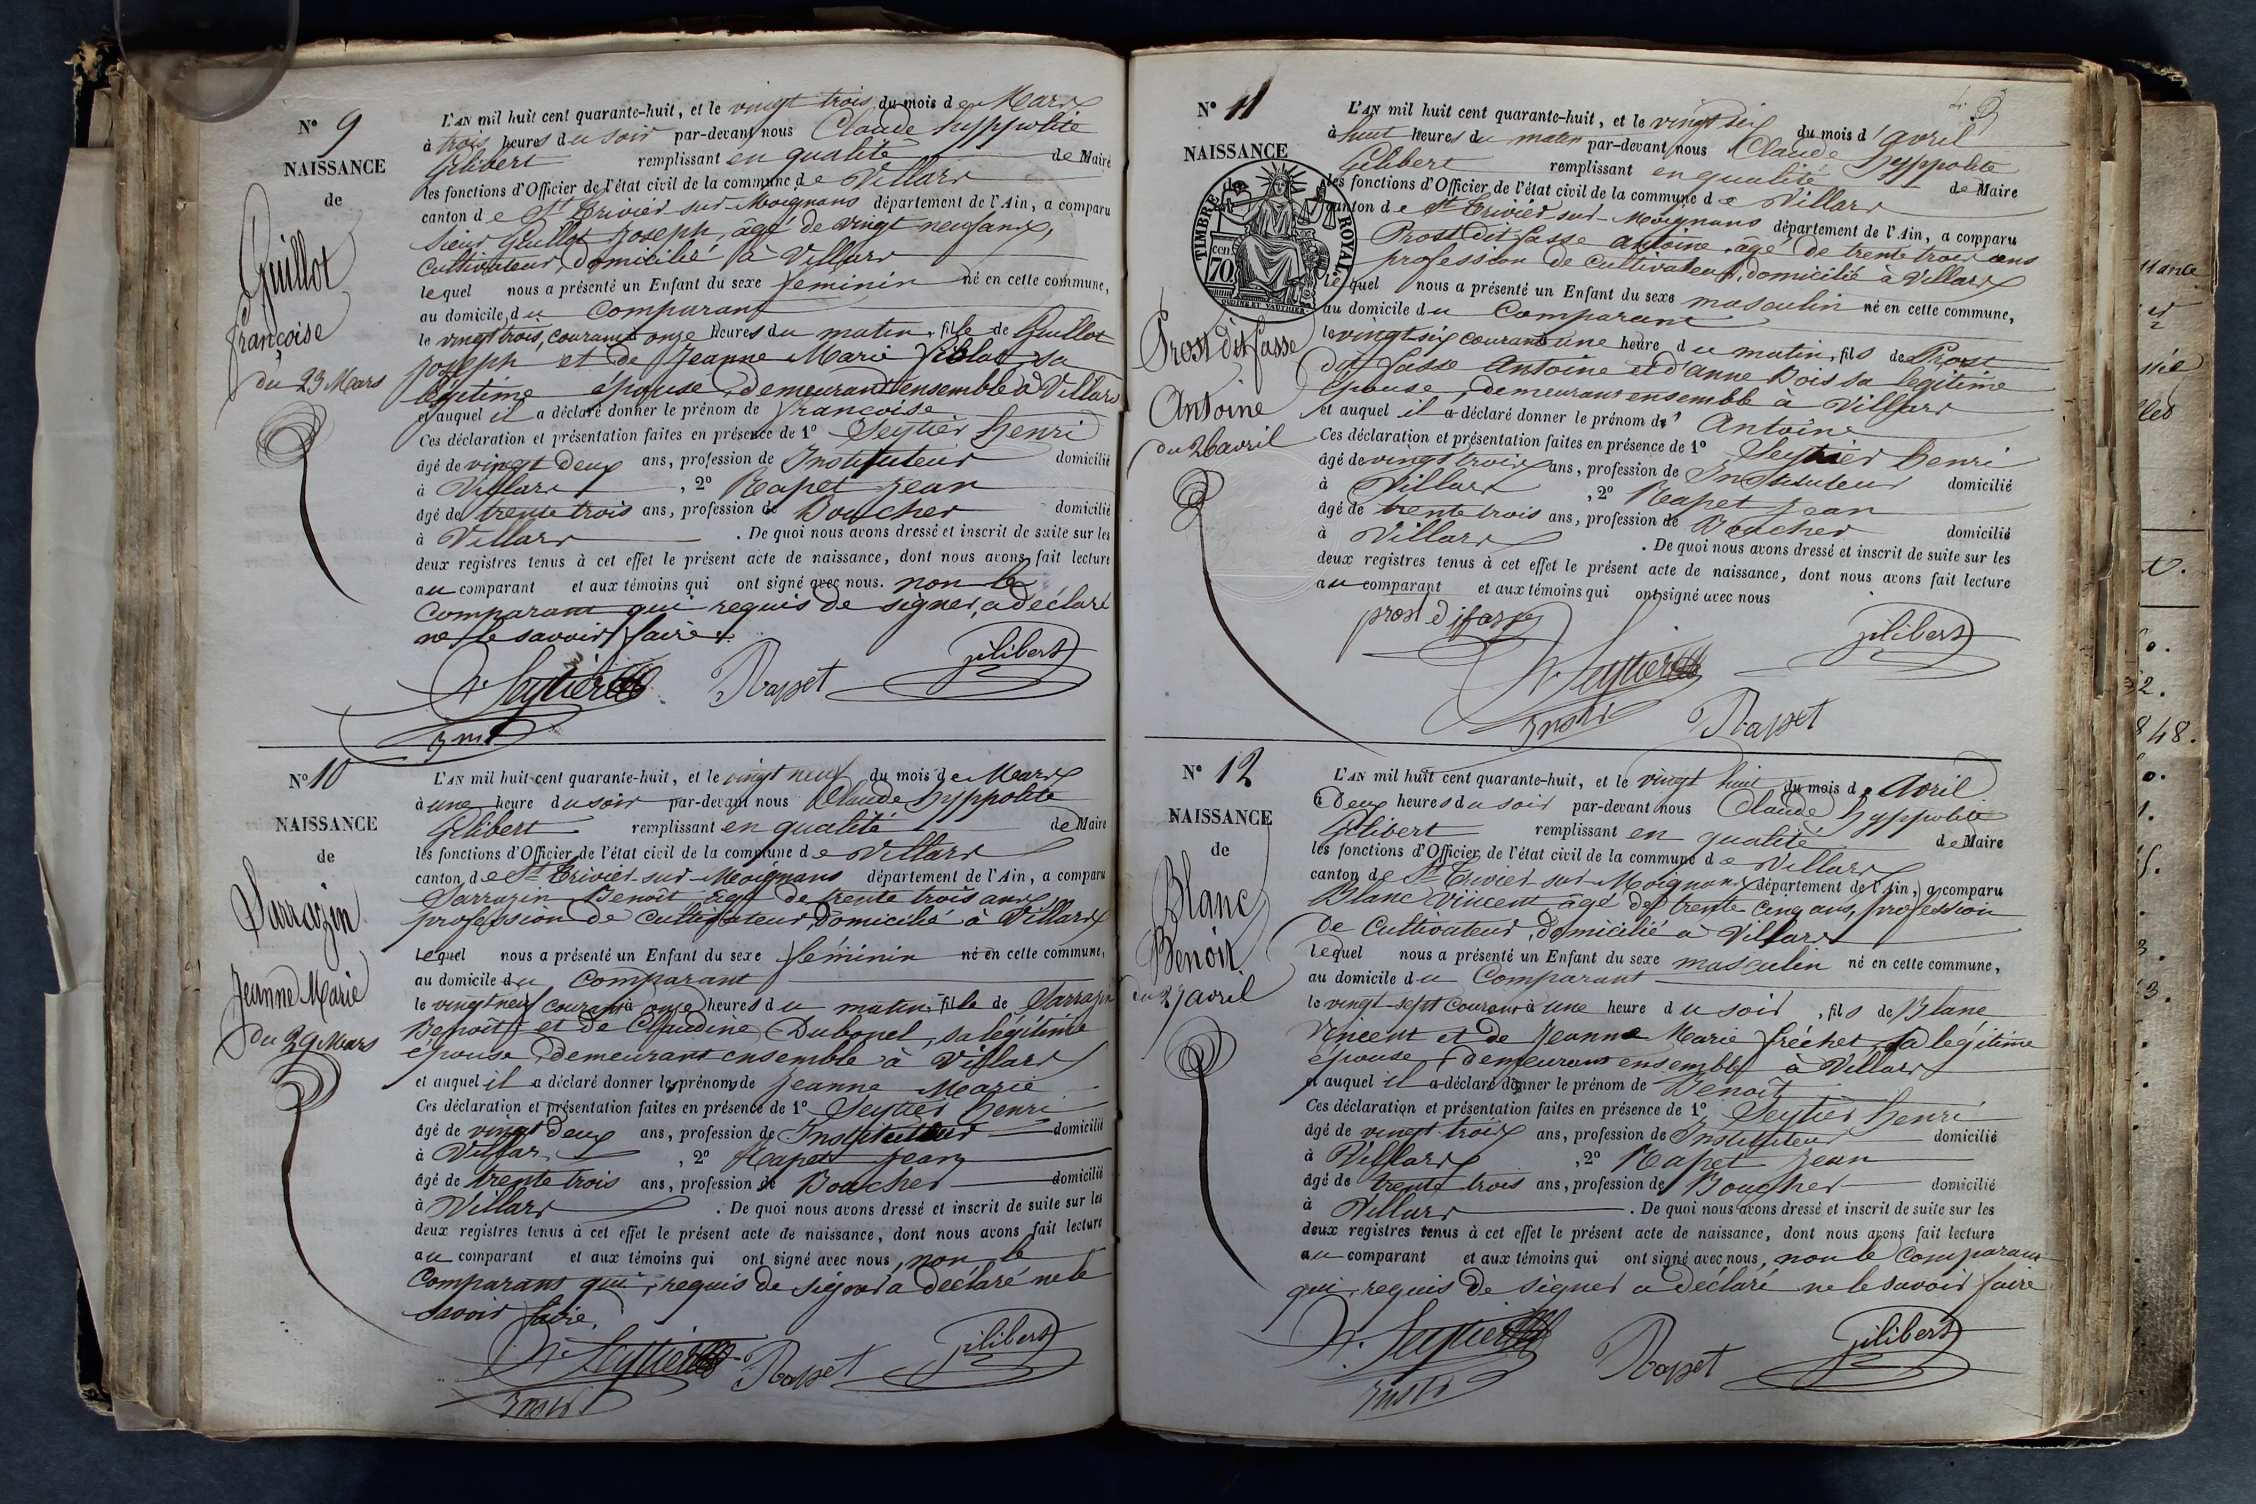 N° 9
NAISSANCE
de
Guillot
Françoise
du 23 Mars
L'AN mil huit cent quarante-huit, et le vingt trois du mois de Mars
à trois heures du soir par-devant nous Claude hyppolite
Gilibert remplissant en qualité de Maire
les fonctions d'Officier de l'état civil de la commune de Villars
canton de St Trivier sur Moignans département de l'Ain, a comparu
Sieur Guillot Joseph, âgé de vingt neuf ans,
cultivateur, domicilié à Villars
lequel nous a présenté un Enfant du sexe feminin né en cette commune,
au domicile du Comparant
le vingt trois, courant onze heures du matin, fille de Guillot
Joseph et de Jeanne Marie sa
légitime épouse, demeurant ensemble à Villars
et auquel il a déclaré donner le prénom de françoise
Ces déclaration et présentation faites en présence de 1° Seytier henri
âgé de vingt deux ans, profession de Instituteur domicilié
à Villars, 2° Rapet Jean
âgé de trente trois ans, profession de Boucher domicilié
à Villars. De quoi nous avons dressé et inscrit de suite sur les
deux registres tenus à cet effet le présent acte de naissance, dont nous avons fait lecture
au comparant et aux témoins qui ont signé avec nous. non le
Comparant qui requis de signer, a déclaré
ne le savoir faire.
H. Seytier Rapet gilibert
Inst
N° 10
NAISSANCE
de
Sarrazin
Jeanne Marie
du 29 Mars
L'AN mil huit cent quarante-huit, et le vingt neuf du mois de Mars
à une heure du soir par-devant nous Claude hyppolite
Gilibert remplissant en qualité de Maire
les fonctions d'Officier de l'état civil de la commune de Villars
canton de St Trivier sur Moignans département de l'Ain, a comparu
Sarrazin Benoît âgé de trente trois ans
profession de Cultivateur, Domicilié à Villars
lequel nous a présenté un Enfant du sexe feminin né en cette commune,
au domicile du Comparant
le vingt neuf courant à onze heures du matin, fille de Sarrazin
Benoît et de Claudine Dubonel, sa légitime
épouse, demeurant ensemble à Villars
et auquel il a déclaré donner les prénoms de Jeanne Marie
Ces déclaration et présentation faites en présence de 1° Seytier henri
âgé de vingt deux ans, profession de Instituteur domicilié
à Villars, 2° Rapet Jean
âgé de trente trois ans, profession de Boucher domicilié
à Villars. De quoi nous avons dressé et inscrit de suite sur les
deux registres tenus à cet effet le présent acte de naissance, dont nous avons fait lecture
au comparant et aux témoins qui ont signé avec nous, non le
Comparant qui, requis de signer a déclaré ne le
savoir faire.
H. Seytier Rapet gilibert
Instr
N° 11
NAISSANCE
de
TIMBRE ROYAL
70 cen
Prost dit fasse
Antoine
du 26 avril
3
L'AN mil huit cent quarante-huit, et le vingt six du mois d'avril
à huit heures du matin par-devant nous Claude hyppolite
Gilibert remplissant en qualité de Maire
les fonctions d'Officier de l'état civil de la commune de Villars
canton de St Trivier sur Moignans département de l'Ain, a comparu
Prost dit fasse antoine, âgé de trente trois ans
profession de Cultivateur, domicilié à Villars
lequel nous a présenté un Enfant du sexe masculin né en cette commune,
au domicile du Comparant
le vingt six courant une heure du matin, fils de Prost
dit fasse Antoine et d'anne Bois sa legitime
épouse, demeurant ensemble à Villars
et auquel il a déclaré donner le prénom d' Antoine
Ces déclaration et présentation faites en présence de 1° Seytier henri
âgé de vingt trois ans, profession de Instituteur domicilié
à Villars, 2° Rapet Jean
âgé de trente trois ans, profession de Boucher domicilié
à Villars. De quoi nous avons dressé et inscrit de suite sur les
deux registres tenus à cet effet le présent acte de naissance, dont nous avons fait lecture
au comparant et aux témoins qui ont signé avec nous
prost difasse gilibert
H. Seytier
Instr Rapet
N° 12
NAISSANCE
de
Blanc
Benoit
du 27 avril
L'AN mil huit cent quarante-huit, et le vingt huit du mois d'avril
à Deux heures du soir par-devant nous Claude hyppolite
Gilibert remplissant en qualité de Maire
les fonctions d'Officier de l'état civil de la commune de Villars
canton de St Trivier sur Moignans département de l'Ain, a comparu
Blanc Vincent âgé de trente cinq ans, profession
de Cultivateur, domicilié à Villars
lequel nous a présenté un Enfant du sexe masculin né en cette commune,
au domicile du Comparant
le vingt-sept courant à une heure du soir, fils de Blanc
Vincent et de Jeanne Marie fréchet, sa legitime
épouse, demeurant ensemble à Villars
et auquel il a déclaré donner le prénom de Benoît
Ces déclaration et présentation faites en présence de 1° Seytier henri
âgé de vingt trois ans, profession de Instituteur domicilié
à Villars, 2° Rapet Jean
âgé de trente trois ans, profession de Boucher domicilié
à Villars. De quoi nous avons dressé et inscrit de suite sur les
deux registres tenus à cet effet le présent acte de naissance, dont nous avons fait lecture
au comparant et aux témoins qui ont signé avec nous, non le Comparant
qui, requis de signer a déclaré ne le savoir faire
H. Seytier Rapet gilibert
Instr